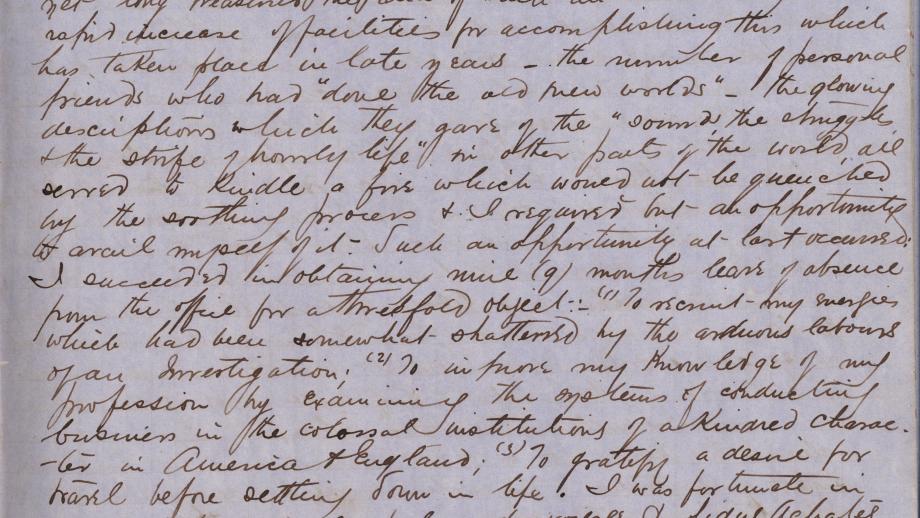 rapid increase of facilities for accomplishing this which
has taken place in late years - the number of personal
friends who had "done the old new worlds" - the glowing
descriptions which they gave of the "sound, the struggle
& the strife of hourly life" in other parts of the world, all
served to kindle a fire which would not be quenched
by the soothing process & I required but an opportunity
to avail myself of it - Such an opportunity at last occurred:
I succeeded in obtaining nine (9) months leave of absence
from the office for a threefold object:- (1) To recruit my energies
which had been somewhat shattered by the arduous labours
of an Investigation; (2) To improve my knowledge of my
profession by examining the systems of conducting
business in the colossal institutions of a kindred charac-
-ter in America & England; (3) To gratify a desire for
travel before settling down in life. I was fortunate in